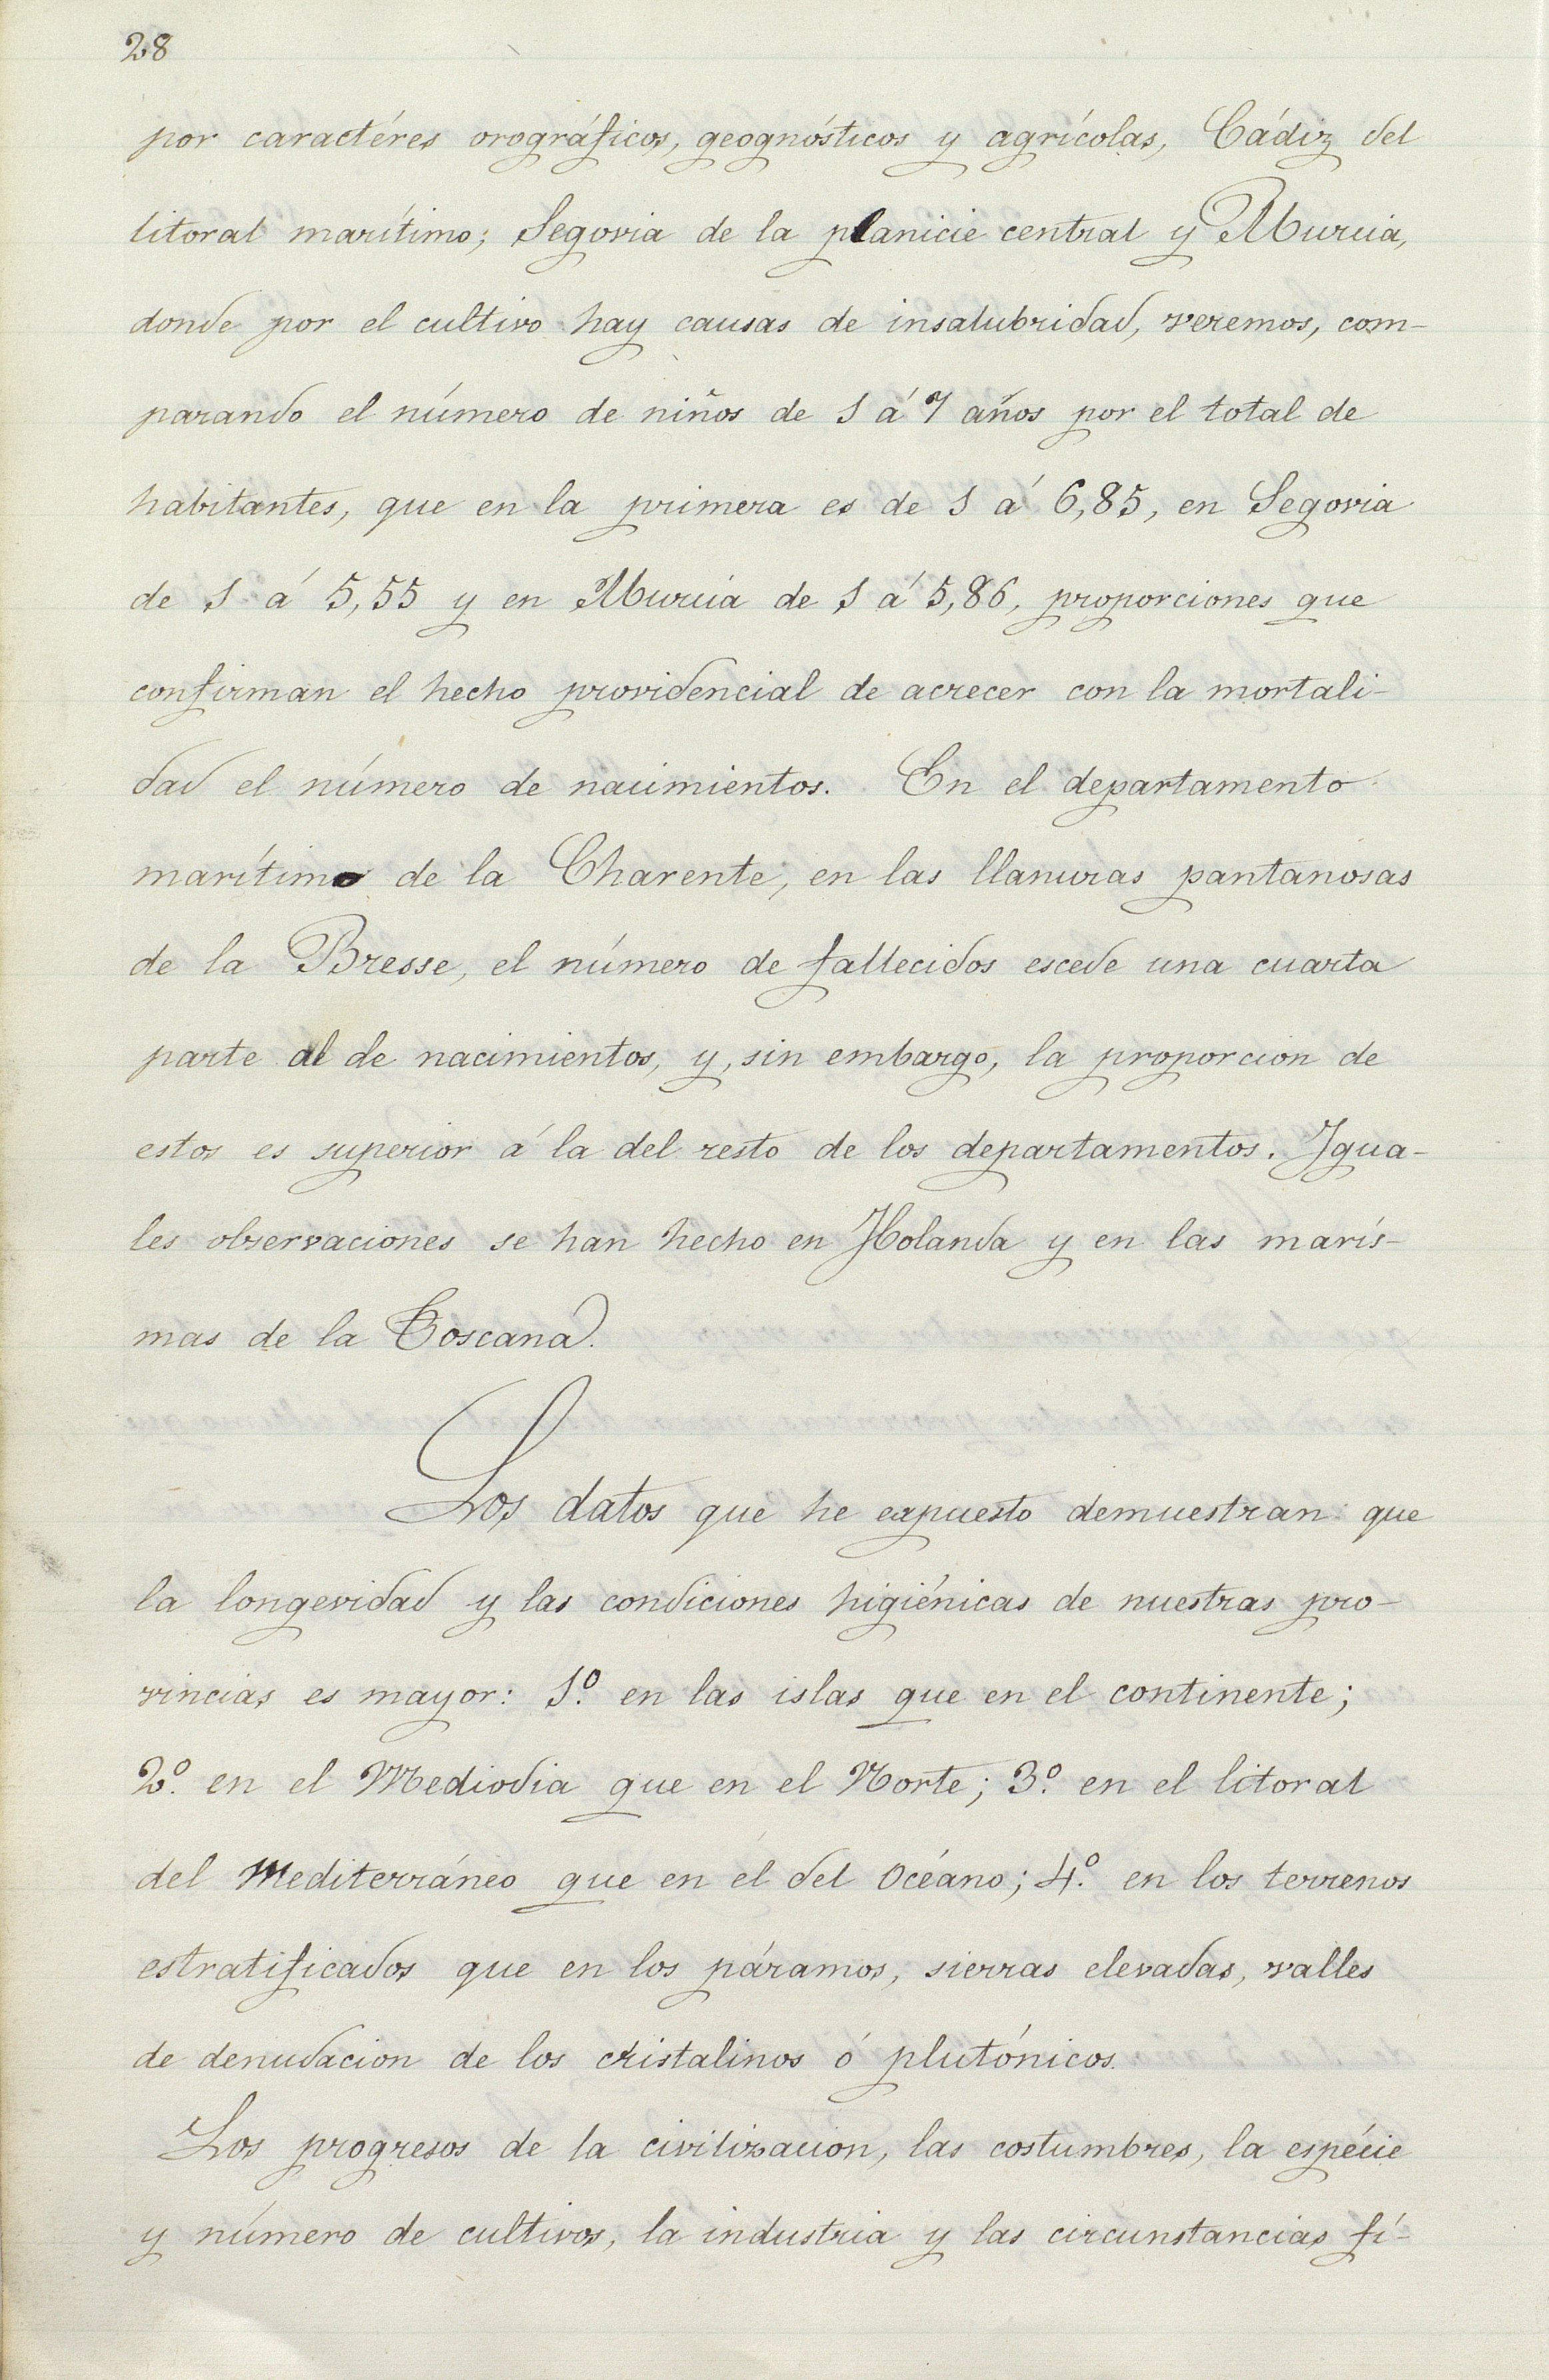 28
por caractéres orográficos, geognósticos y agrícolas, Cádiz del
litoral marítimo; Segovia de la planicie central y Murcia,
donde por el cultivo hay causas de insalubridad, veremos, com-
parando el número de niños de 1 á 7 años por el total de
habitantes, que en la primera es de 1 á 6,85, en Segovia
de 1 á 5,55 y en Murcia de 1 á 5,86, proporciones que
confirman el hecho providencial de acrecer con la mortali-
dad el número de nacimientos. En el departamento
marítimo de la Charente, en las llanuras pantanosas
de la Bresse, el número de fallecidos escede una cuarta
parte al de nacimientos, y, sin embargo, la proporcion de
estos es superior á la del resto de los departamentos. Igua-
les observaciones se han hecho en Holanda y en las marís-
mas de la Toscana.
Los datos que he expuesto demuestran: que
la longevidad y las condiciones higiénicas de nuestras pro-
vincias es mayor: 1.º en las islas que en el continente;
2.º en el Mediodia que en el Norte; 3.º en el litoral
del Mediterráneo que en el del Océano; 4.º en los terrenos
estratificados que en los páramos, sierras elevadas, valles
de denudacion de los cristalinos ó plutónicos.
Los progresos de la civilizacion, las costumbres, la espécie
y número de cultivos, la industria y las circunstancias fí-